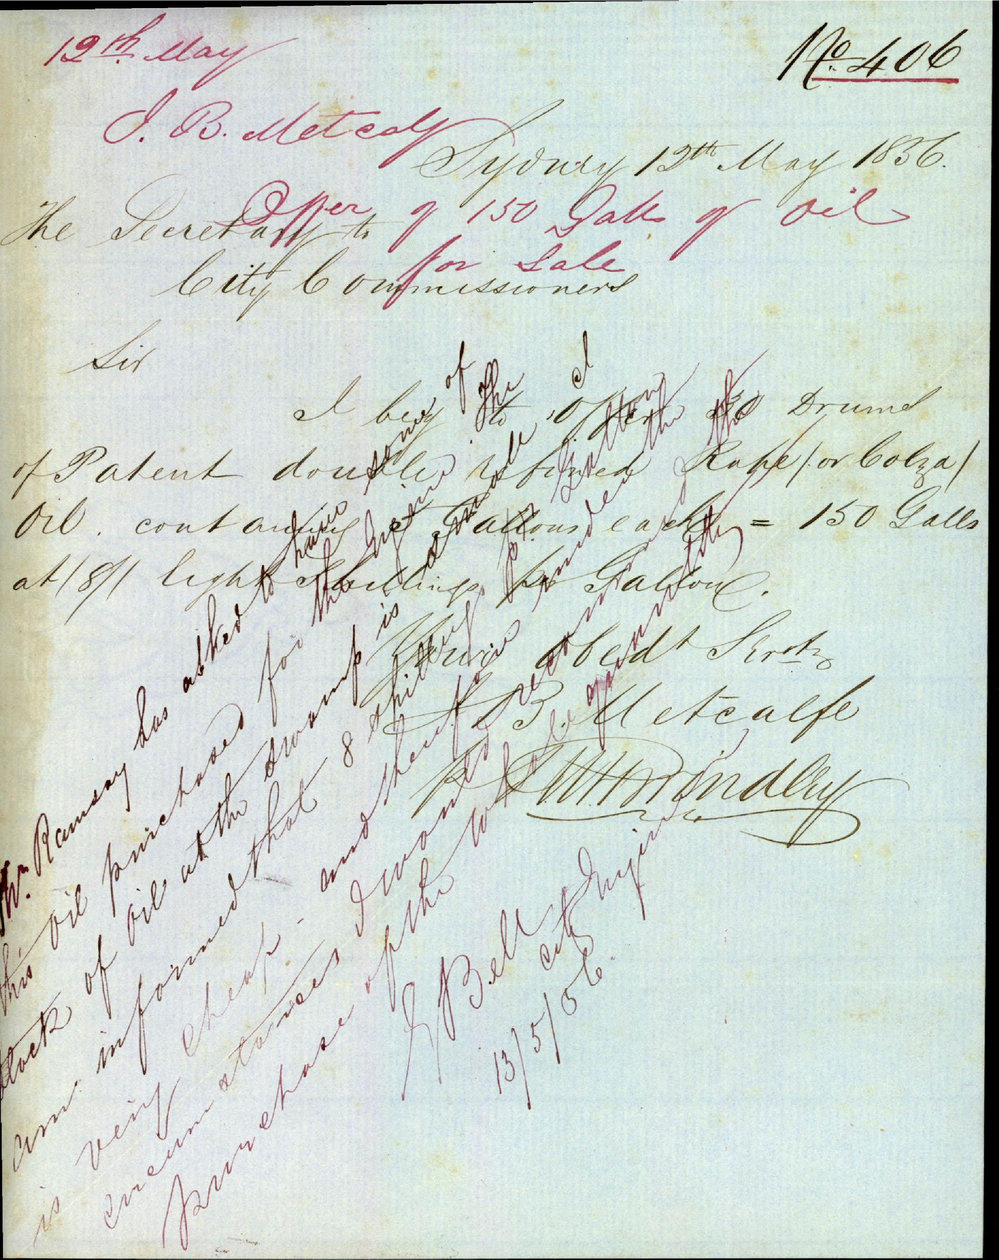 12th. May
No. 406
J. B. Metcalf
Sydney 12th May 1856.
Offer of 150 Galls of Oil
for Sale
The Secretary to
City Commissioners
Sir
I beg to Offer 30 Drums
of Patent double refined Rape (or Colza)
Oil. containing 5 Gallons each = 150 Galls
at (8/) Eight Shillings per Gallon.
Your obedt Servt
J B Metcalfe
p Brindley
Mr. Ramsay has asked to have some of
this oil purchased for the Engine. The
stock of oil at the swamp is small. I
am informed that 8 shillings pr Gallon
is very cheap - and therefore under the
circumstances I would recommend the
purchase of the whole quantity
E Bell
City Engineer
13/5/56.